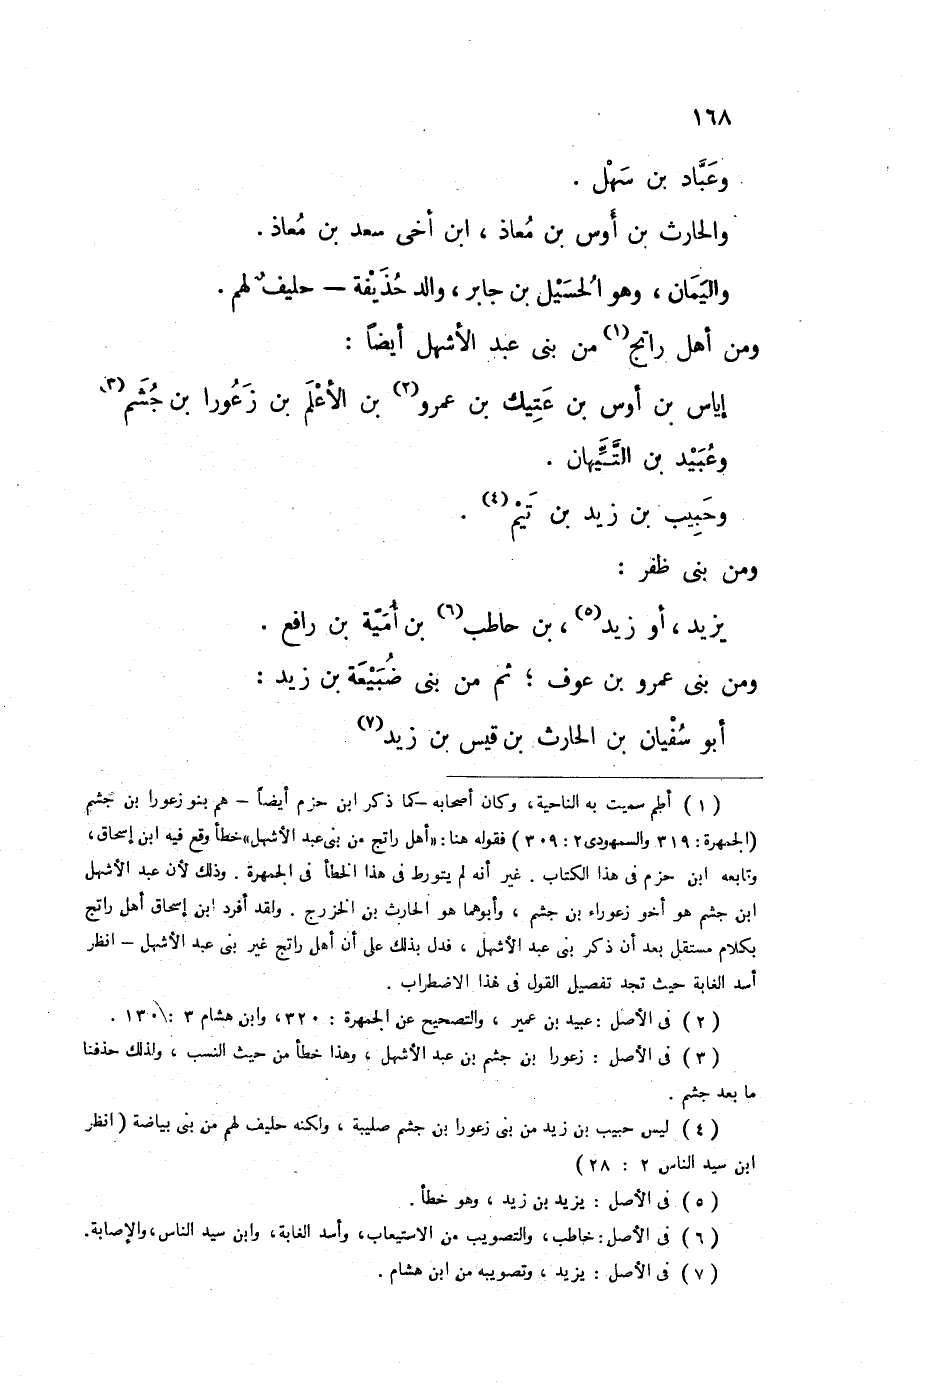 ١٦٨
وعَبَّاد بن سَهْل .
والحارث بن أَوس بن مُعاذ ، ابن أخى سعد بن مُعاذ .
واليَمَان ، وهو الحُسَيْل بن جابر ، والد حُذَيْفة — حليفٌ لهم .
ومن أهل راتج(١) من بنى عبد الأشهل أيضاً :
إياس بن أوس بن عَتِيك بن عمرو(٢) بن الأعْلَم بن زَعُورا بن جُشَم(٣)،
وعُبَيْد بن التَّيِّهان .
وحَبِيب بن زيد بن تَيْم(٤) .
ومن بنى ظفر :
يزيد ، أو زيد(٥) ، بن حاطب(٦) بن أُمَيّة بن رافع .
ومن بنى عمرو بن عوف ؛ ثم من بنى ضُبَيْعَة بن زيد :
أبو سُفْيان بن الحارث بن قيس بن زيد(٧)
( ١ ) أطم سميت به الناحية ، وكان أصحابه – كما ذكر ابن حزم أيضاً – هم بنو زعورا بن جشم
(الجمهرة : ٣١٩ والسمهودى ٢ : ٣٠٩ ) فقوله هنا : «أهل راتج من بنى عبد الأشهل» خطأ وقع فيه ابن إسحاق ،
وتابعه ابن حزم فى هذا الكتاب . غير أنه لم يتورط فى هذا الخطأ فى الجمهرة . وذلك لأن عبد الأشهل
ابن جشم هو أخو زعوراء بن جشم ، وأبوهما هو الحارث بن الخزرج . ولقد أفرد ابن إسحاق أهل راتج
بكلام مستقل بعد أن ذكر بنى عبد الأشهل ، فدل بذلك على أن أهل راتج غير بنى عبد الأشهل – انظر
أسد الغابة حيث تجد تفصيل القول فى هذا الاضطراب .
( ٢ ) فى الأصل : عبيد بن عمير ، والتصحيح عن الجمهرة : ٣٢٠ ، وابن هشام ٣ : ١٣٠ .
( ٣ ) فى الأصل : زعورا بن جشم بن عبد الأشهل ، وهذا خطأ من حيث النسب ، ولذلك حذفنا
ما بعد جشم .
( ٤ ) ليس حبيب بن زيد من بنى زعورا بن جشم صليبة ، ولكنه حليف لهم من بنى بياضة ( انظر
ابن سيد الناس ٢ : ٢٨ )
( ٥ ) فى الأصل : يزيد بن زيد ، وهو خطأ .
( ٦ ) فى الأصل : خاطب ، والتصويب من الاستيعاب ، وأسد الغابة ، وابن سيد الناس ، والإصابة .
( ٧ ) فى الأصل : يزيد ، وتصويبه من ابن هشام .